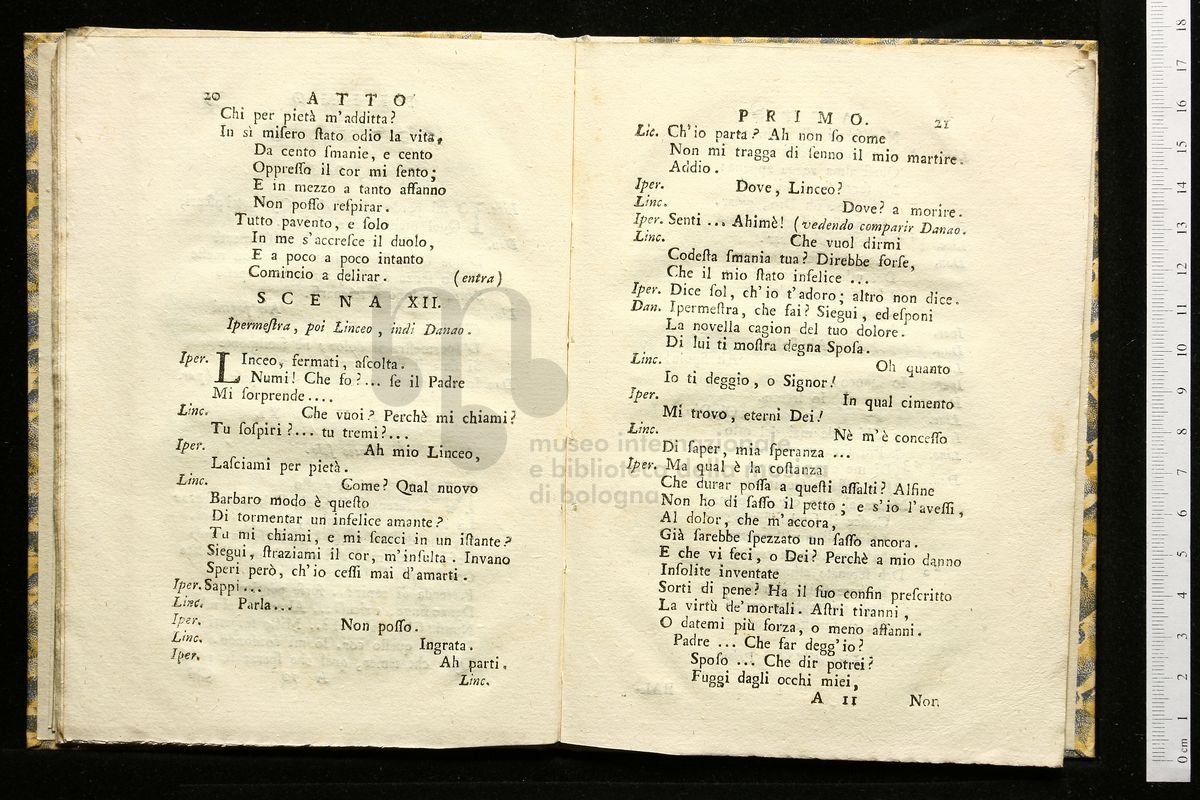 20 ATTO
Chi per pietà m'additta?
In sì miſero ſtato odio la vita,
Da cento ſmanie, e cento
Oppreſſo il cor mi ſento;
E in mezzo a tanto affanno
Non poſſo reſpirar.
Tutto pavento, e ſolo
In me s'accreſce il duolo,
E a poco a poco intanto
Comincio a delirar. (entra)
SCENA XII.
Ipermeſtra, poi Linceo, indi Danao.
Iper. LInceo, fermati, aſcolta.
Numi! Che fo?... ſe il Padre
Mi ſorprende....
Linc. Che vuoi? Perchè mi chiami?
Tu ſoſpiri?... tu tremi?...
Iper. Ah mio Linceo,
Laſciami per pietà.
Linc. Come? Qual nuovo
Barbaro modo è queſto
Di tormentar un infelice amante?
Tu mi chiami, e mi ſcacci in un iſtante?
Siegui, ſtraziami il cor, m'inſulta. Invano
Speri però, ch'io ceſſi mai d'amarti.
Iper. Sappi...
Linc. Parla...
Iper. Non poſſo.
Linc. Ingrata.
Iper. Ah parti.
Linc.
PRIMO. 21
Lic. Ch'io parta? Ah non ſo come
Non mi tragga di ſenno il mio martire.
Addio.
Iper. Dove, Linceo?
Linc. Dove? a morire.
Iper. Senti ... Ahimè! (vedendo comparir Danao.
Linc. Che vuol dirmi
Codeſta ſmania tua? Direbbe forſe,
Che il mio ſtato infelice ...
Iper. Dice ſol, ch'io t'adoro; altro non dice.
Dan. Ipermeſtra, che fai? Siegui, ed eſponi
La novella cagion del tuo dolore.
Di lui ti moſtra degna Spoſa.
Linc. Oh quanto
Io ti deggio, o Signor!
Iper. In qual cimento
Mi trovo, eterni Dei!
Linc. Nè m'è conceſſo
Di ſaper, mia ſperanza ...
Iper. Ma qual è la coſtanza
Che durar poſſa a queſti aſſalti? Alfine
Non ho di ſaſſo il petto; e s'io l'aveſſi,
Al dolor, che m'accora,
Già ſarebbe ſpezzato un ſaſſo ancora.
E che vi feci, o Dei? Perchè a mio danno
Inſolite inventate
Sorti di pene? Ha il ſuo confin preſcritto
La virtù de'mortali. Aſtri tiranni,
O datemi più forza, o meno affanni.
Padre ... Che far degg'io?
Spoſo ... Che dir potrei?
Fuggi dagli occhi miei,
A 11 Non
museo internazionale
e biblioteca della musica
di bologna
0 cm 1 2 3 4 5 6 7 8 9 10 11 12 13 14 15 16 17 18